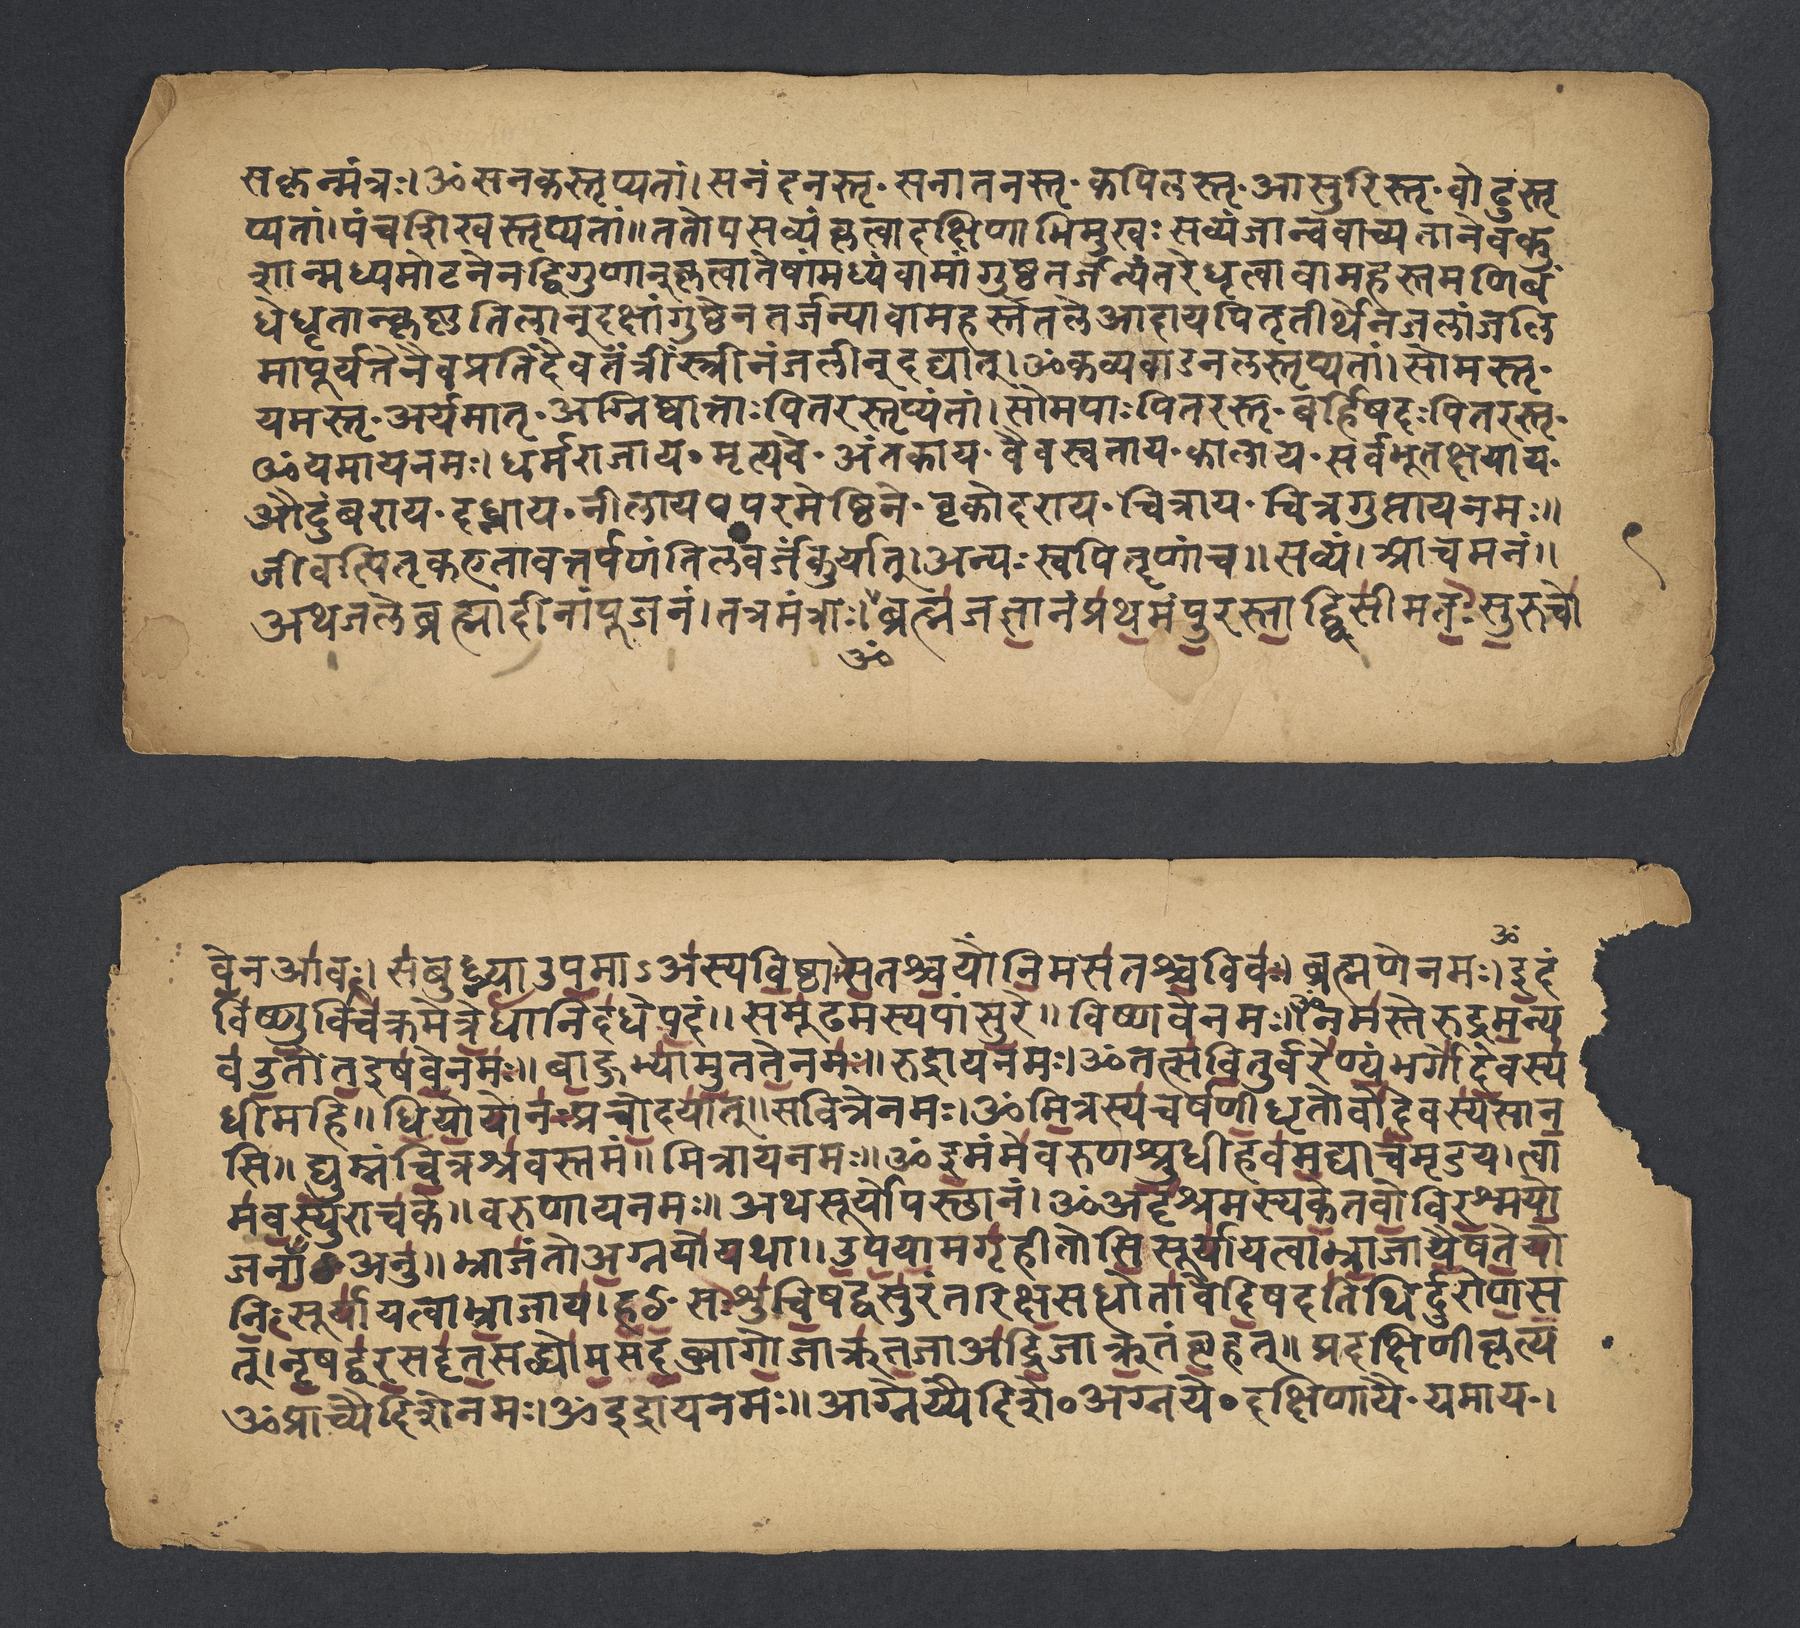 सकृन्मंत्रः। ॐ सनकस्तृप्यतां। सनंदनस्तृ॰ सनातनस्तृ॰ कपिलस्तृ॰ आसुरिस्तृ॰ वोढुस्तृ
प्यतां। पंचशिखस्तृप्यतां॥ ततोपसव्यं कृत्वा दक्षिणाभिमुखः सव्यं जान्ववाच्य तानेव कु
शान्मध्यमोटनेन द्विगुणानुकृत्वा तेषां मध्यं वामांगुष्ठतर्जन्यंतरे धृत्वा वामहस्तमणिबं
धे धृतान्कृष्णतिलानु दक्षांगुष्ठेन तर्जन्या वामहस्ततले आदाय पितृतीर्थेन जलांजलि
मापूर्य तेनैव प्रतिदैवतं त्रींस्त्रीनंजलीनु दद्यातु। ॐ कव्यवाडनलस्तृप्यतां। सोमस्तृ॰
यमस्तृ॰ अर्यमातृ॰ अग्निष्वात्ताः पितरस्तृप्यंतां। सोमपाः पितरस्तृ॰ बर्हिषदः पितरस्तृ॰
ॐ यमाय नमः। धर्मराजाय॰ मृत्यवे॰ अंतकाय॰ वैवस्वताय॰ कालाय॰ सर्वभूतक्षयाय॰
औदुंबराय॰ दध्नाय॰ नीलाय॰ परमेष्ठिने॰ वृकोदराय॰ चित्राय॰ चित्रगुप्ताय नमः॥
जीवत्पितृक एतावत्तर्पणं तिलवर्जं कुर्यातु। अन्यः स्वपितॄणां च॥ सव्यं। आचमनं॥
अथ जले ब्रह्मादीनां पूजनं। तत्र मंत्राः। ब्रह्म जज्ञानं प्रथमं पुरस्ताद्विसीमतः सुरुचो
ॐ
ॐ
वेन आवः। स बुध्न्या उपमाऽअस्य विष्ठाः सतश्च योनिमसतश्च विवः। ब्रह्मणे नमः। इदं
विष्णुर्विचक्रमे त्रेधा निदधे पदं॥ समूढमस्य पांसुरे॥ विष्णवे नमः॥ ॐ नमस्ते रुद्र मन्य
व उतो त इषवे नमः॥ बाहुभ्यामुत ते नमः॥ रुद्राय नमः। ॐ तत्सवितुर्वरेण्यं भर्गो देवस्य
धीमहि॥ धियो यो नः प्रचोदयातु॥ सवित्रे नमः। ॐ मित्रस्य चर्षणीधृतोवो देवस्य सान
सि॥ द्युम्नं चित्रश्रवस्तमं॥ मित्राय नमः॥ ॐ इमं मे वरुण श्रुधी हवमद्या च मृडय। त्वा
मवस्युराचके॥ वरुणाय नमः॥ अथ सूर्योपस्छानं। ॐ अदृश्रमस्य केतवो वि रश्मयो
जनाँ अनु॥ भ्राजंतो अग्नयो यथा॥ उपयामगृहीतोसि सूर्याय त्वा भ्राजायैष ते यो
निः सूर्याय त्वा भ्राजाय। हꣳसः शुचिषद्वसुरंतरिक्षसद्धोता वेदिषदतिथिर्दुरोणस
तु। नृषद्वरसदृतसद्व्योमसदब्जा गोजा ऋतजा अद्रिजा ऋतं बृहतु॥ प्रदक्षिणीकृत्य
ॐ प्राच्यै दिशे नमः। ॐ इंद्राय नमः॥ आग्नेय्यै दिशे॰ अग्नये॰ दक्षिणायै॰ यमाय॰।